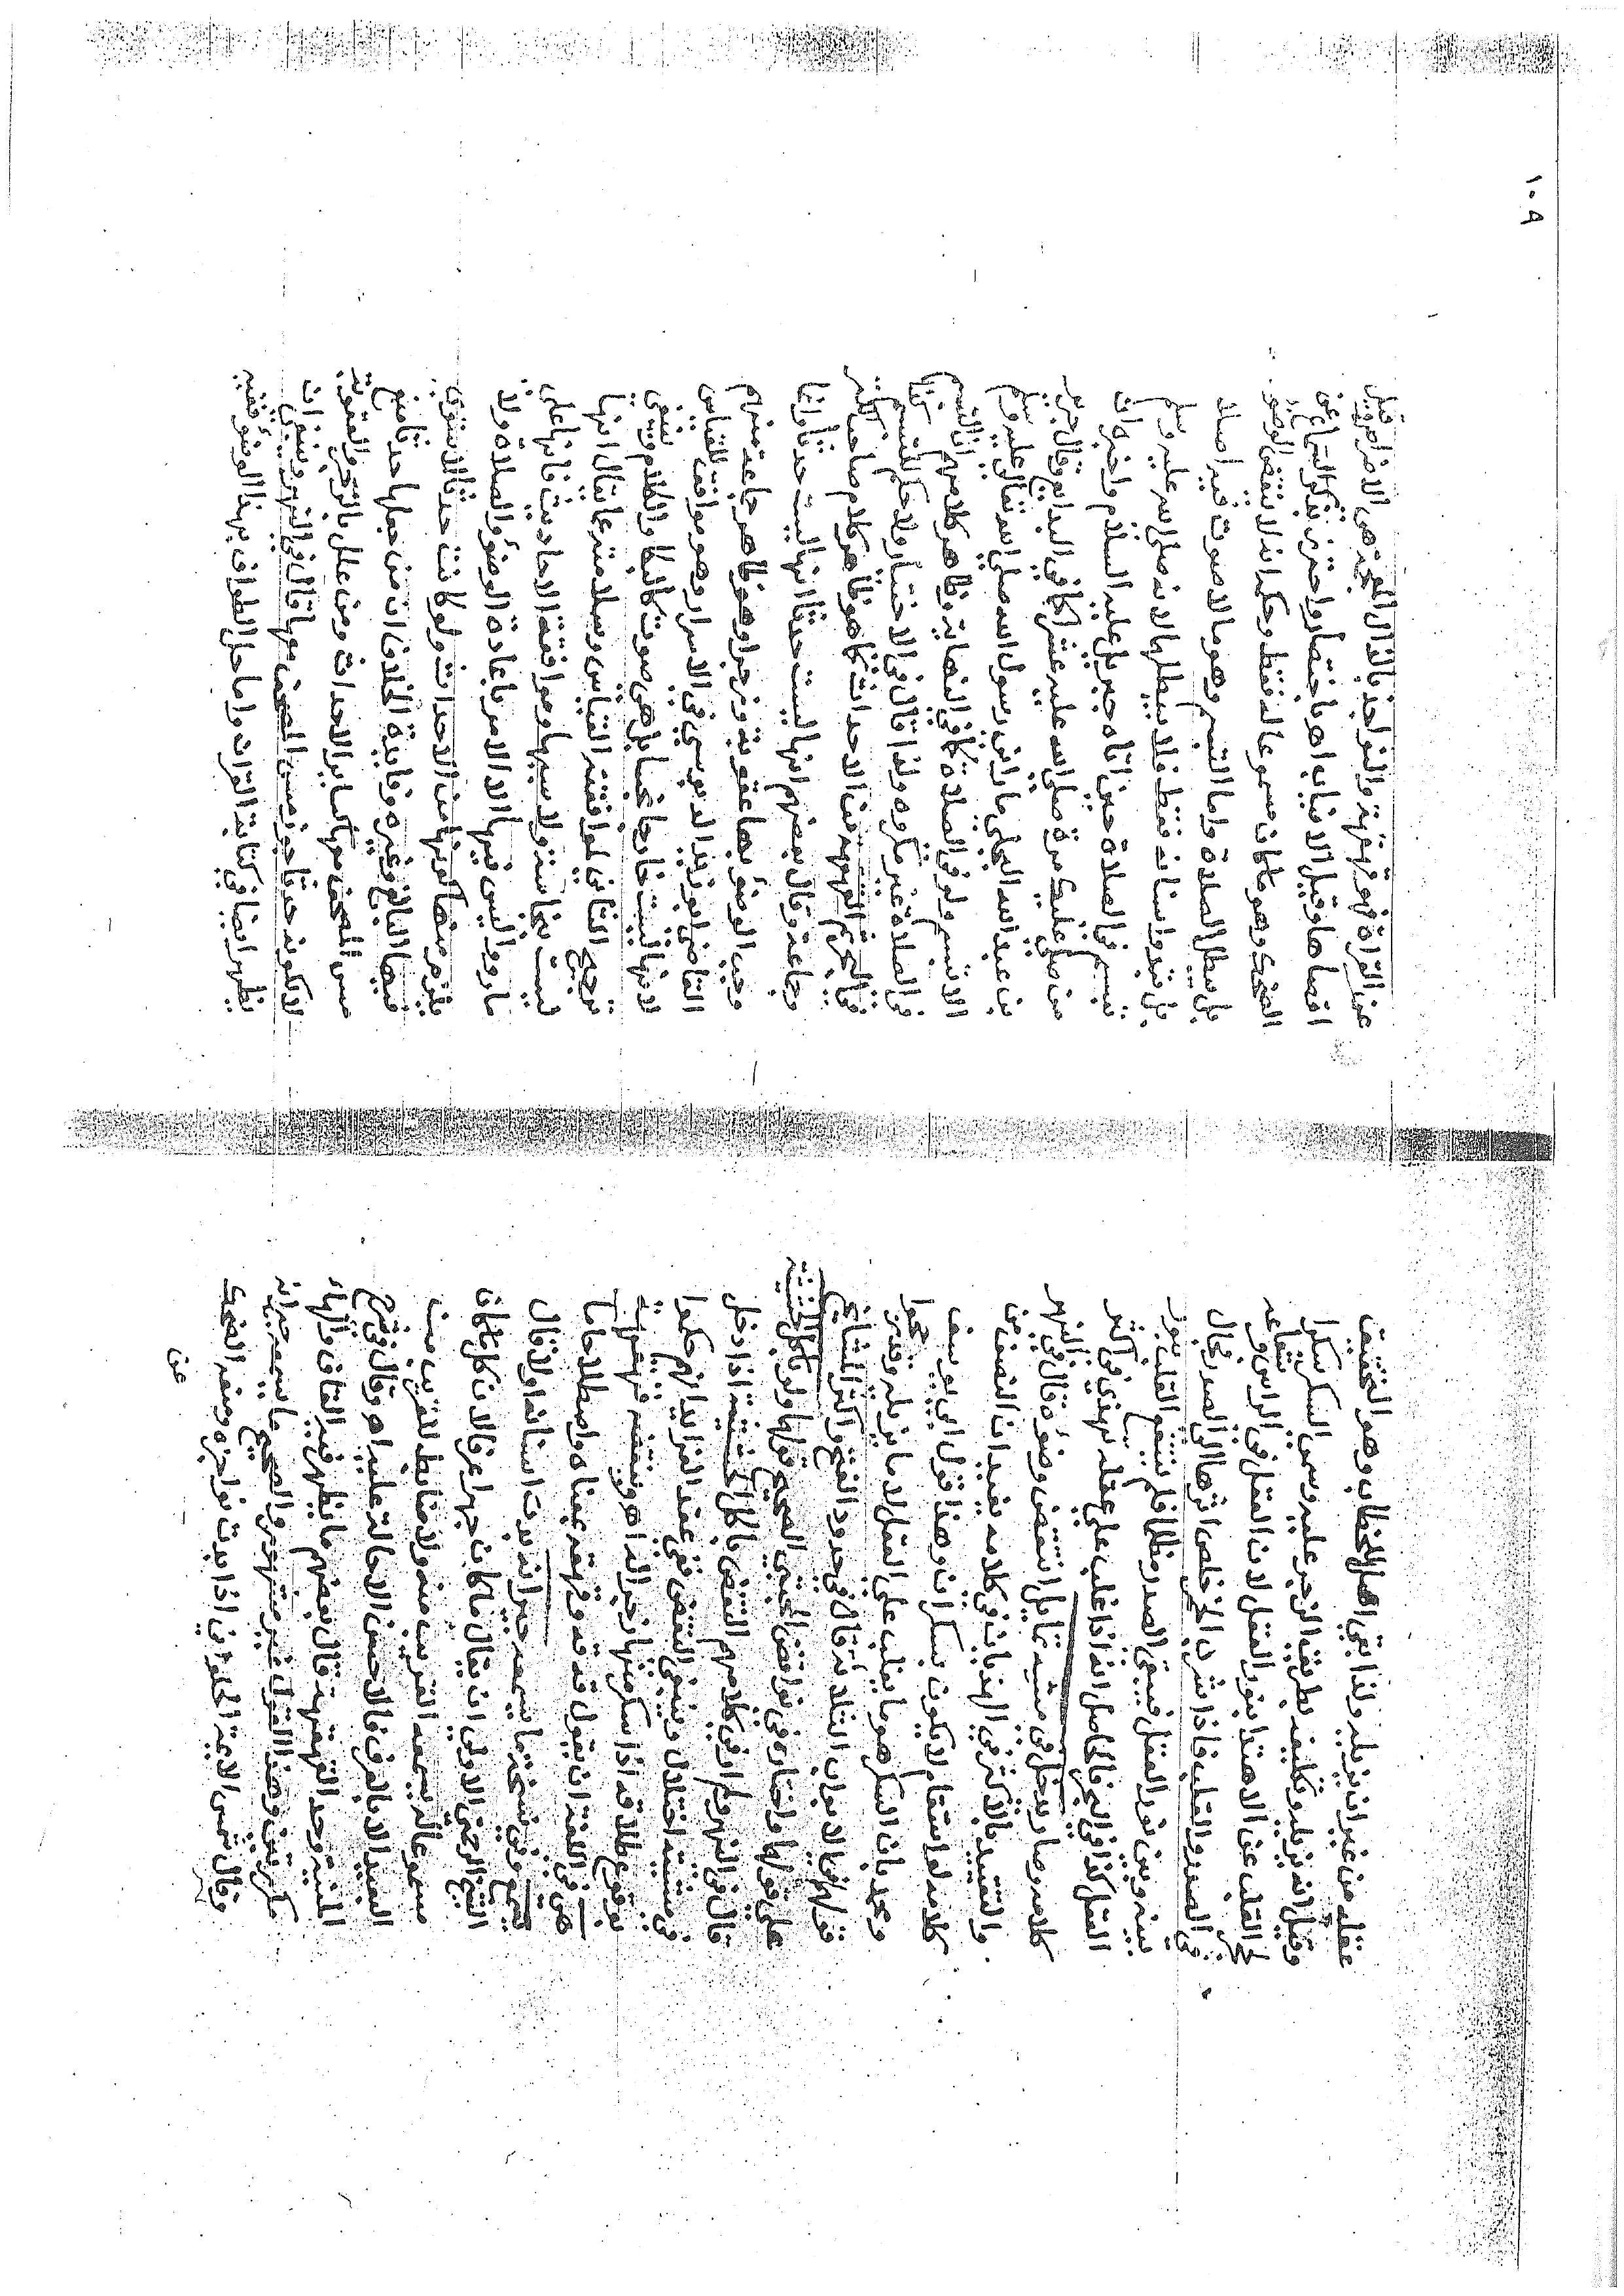 عقله من غير ان يزيله ولذا بقي اهلا للخطاب وهو التحقيق
وقيل انه يزيله وتكليفه بطريق الزجر عليه وسمي السكر سكرا
القلب عن الاهتدا بنور العقل لان العقل في الراس وشعاعه
في الصدر والقلب فاذا شرب الخمر خلص اثرها الى الصدر فحال
بينه وبين نور العقل فيبقى الصدر مظلما فلم ينتفع القلب بنور
العقل كذا في البحر فالحاصل انه اذا غلب على عقله يهذي في اكثر
كلامه وصار يدخل في مشيه تمايل انتقض وضوءه قال في النهر
والتقييد بالاكثر في الهذيان في كلامه يفيد ان النصف من
كلامه لو استقام لا يكون بسكران وهذا قول ابي يوسف
ومحمد بان السكر هو ما يغلب على العقل لا ما يزيله وقد رجحوا
قولهما في الابواب الثلاثة قال في حدود الفتح واكثر المشايخ
على قولهما واختاره في نواقض المجتبى الصحيح قولهما ولو باكل الحشيشة
قال في النهر ولم ار في كلامهم النقض باكل الحشيشة اذا دخل
في مشيته اختلال وينبغي النقض ففي عقد الفرائد انهم حكموا
بوقوع طلاقه اذا سكر منها زجرا له اهـ وينقضه قهقهة
هي في اللغة ان يقول قه قه وقهقه بمعناه واصطلاحا ما
يسمع وفي نسخة ما يسمعه جيرانه بدت اسنانه اولا قال
الشيخ الرحمتي الاولى ان يقال ما كان جهرا عرفا لان كل ما كان
مسموعا له يسمعه القريب منه ولا ضابط للقريب منه
التقييد الا بالعرف فالاحسن الاحالة عليه اهـ وقال في شرح
المنية وحد القهقهة قال بعضهم ما يظهر فيه القاف والهاء
مكررتين وهذا القول غير مشتهر والصحيح ما يسمعه جيرانه
وقال شمس الائمة الحلواني اذا بدت نواجذه ومنعه الضحك
عن
١٠٩
عن القراءة فهو قهقهة والنواجذ بالذال المعجمة هي الاضراس وقيل
اقصاها وقيل الانياب اهـ باختصار واحترز بذكر السماع عن
الضحك وهو ما كان مسموعا له فقط وحكمه انه لا ينقض الوضوء
بل يبطل الصلاة واما التبسم وهو ما لا صوت فيه اصلا
بل تبدو اسنانه فقط فلا يبطلهما لانه صلى الله عليه وسلم
تبسم في الصلاة حين اتاه جبريل عليه السلام واخبره ان
من صلى عليك مرة صلى الله عليه عشرا كما في البدائع وقال جرير
بن عبد الله البجلي ما راني رسول الله صلى الله تعالى عليه وسلم
الا تبسم ولو في الصلاة كما في النهاية وظاهر كلامهم ان التبسم
في الصلاة غير مكروه ولذا قال في الاختيار ولا حكم للتبسم
وجماعة وقال بعضهم انها ليست حدثا وانما
وجب الوضوء بها عقوبة وزجرا وهو ظاهر جماعة منهم
القاضي ابو زيد الدبوسي في الاسرار وهو موافق للقياس
لانها ليست خارجا نجسا بل هي صوت كالبكا والكلام وينبغي
ترجيح الثاني لموافقته القياس وسلامته مما يقال انها
ليست نجاسة ولا سببها وموافقة الاحاديث فانها على
ما روو اليس فيها الا الامر باعادة الوضوء والصلاة ولا
يلزم منها كونها من الاحداث ولو كانت حدثا لاستوى
فيها البالغ وغيره وفايدة الخلاف ان من جعلها حدثا منع
مس المصحف معها كساير الاحداث ومن علل بالزجر والعقوبة
لا لكونه حدثا جوز مس المصحف معها قال في النهر وينبغي ان
يظهر ايضا في كتابة القران واما حل الطواف بهذا الوضوء ففيه